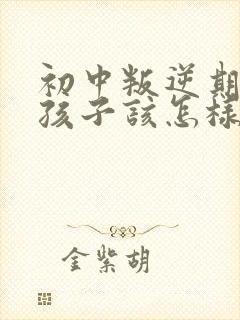 初中叛逆期
孩子该怎样
金紫胡